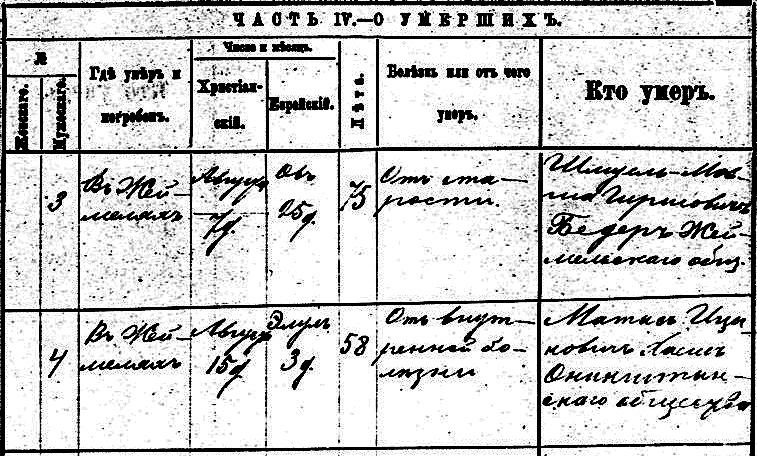 ЧАСТЬ IV.—О УМЕРШИХЪ.
№
Женскаго.
Мужескаго.
Гдѣ умѣръ и
погребенъ.
Число и мѣсяцъ.
Христіан-
скій.
Еврейскій.
Лѣта.
Болѣзнь или отъ чего
умеръ.
Кто умеръ.
3
Въ Жей-
мелахъ
Августа
7д.
Овъ
25д.
75
Отъ ста-
рости.
Шмуель-Мов-
ша Гиршовичъ
Бедеръ Жей-
мельскаго общ.
4
Въ Жей-
мелахъ
Августа
15д
Элулъ
3д.
58
Отъ внут-
ренней бо-
лѣзни
Матысъ Ицы-
ковичъ
скаго общества